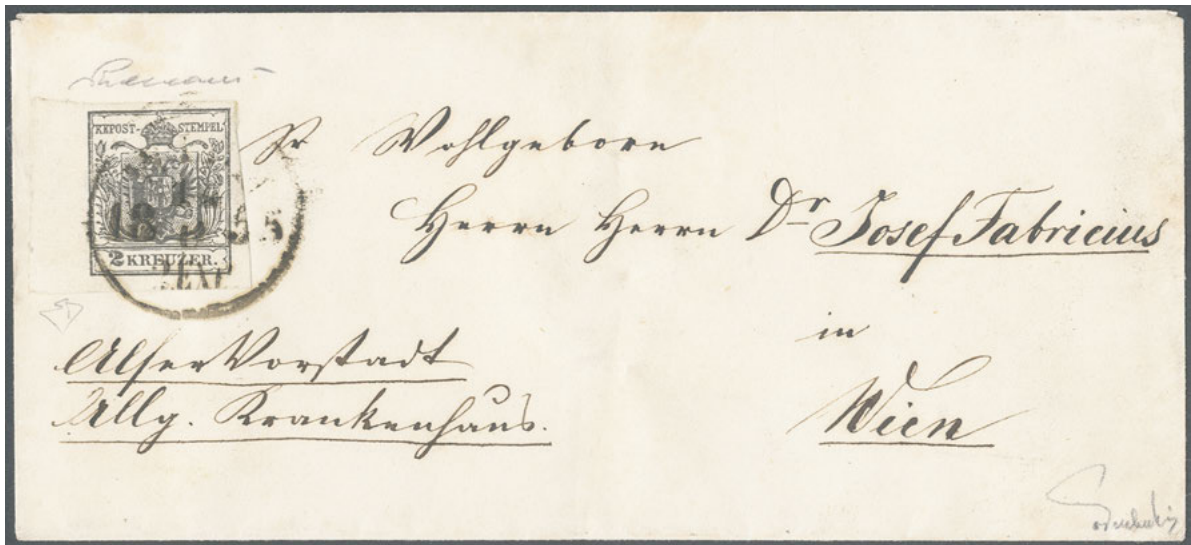 KKPOST-STEMPEL
2 KREUZER.
Sr Wohlgeborn
Herrn Herrn Dr Josef Fabricius
in
Wien
Alser Vorstadt
Allg. Krankenhaus.